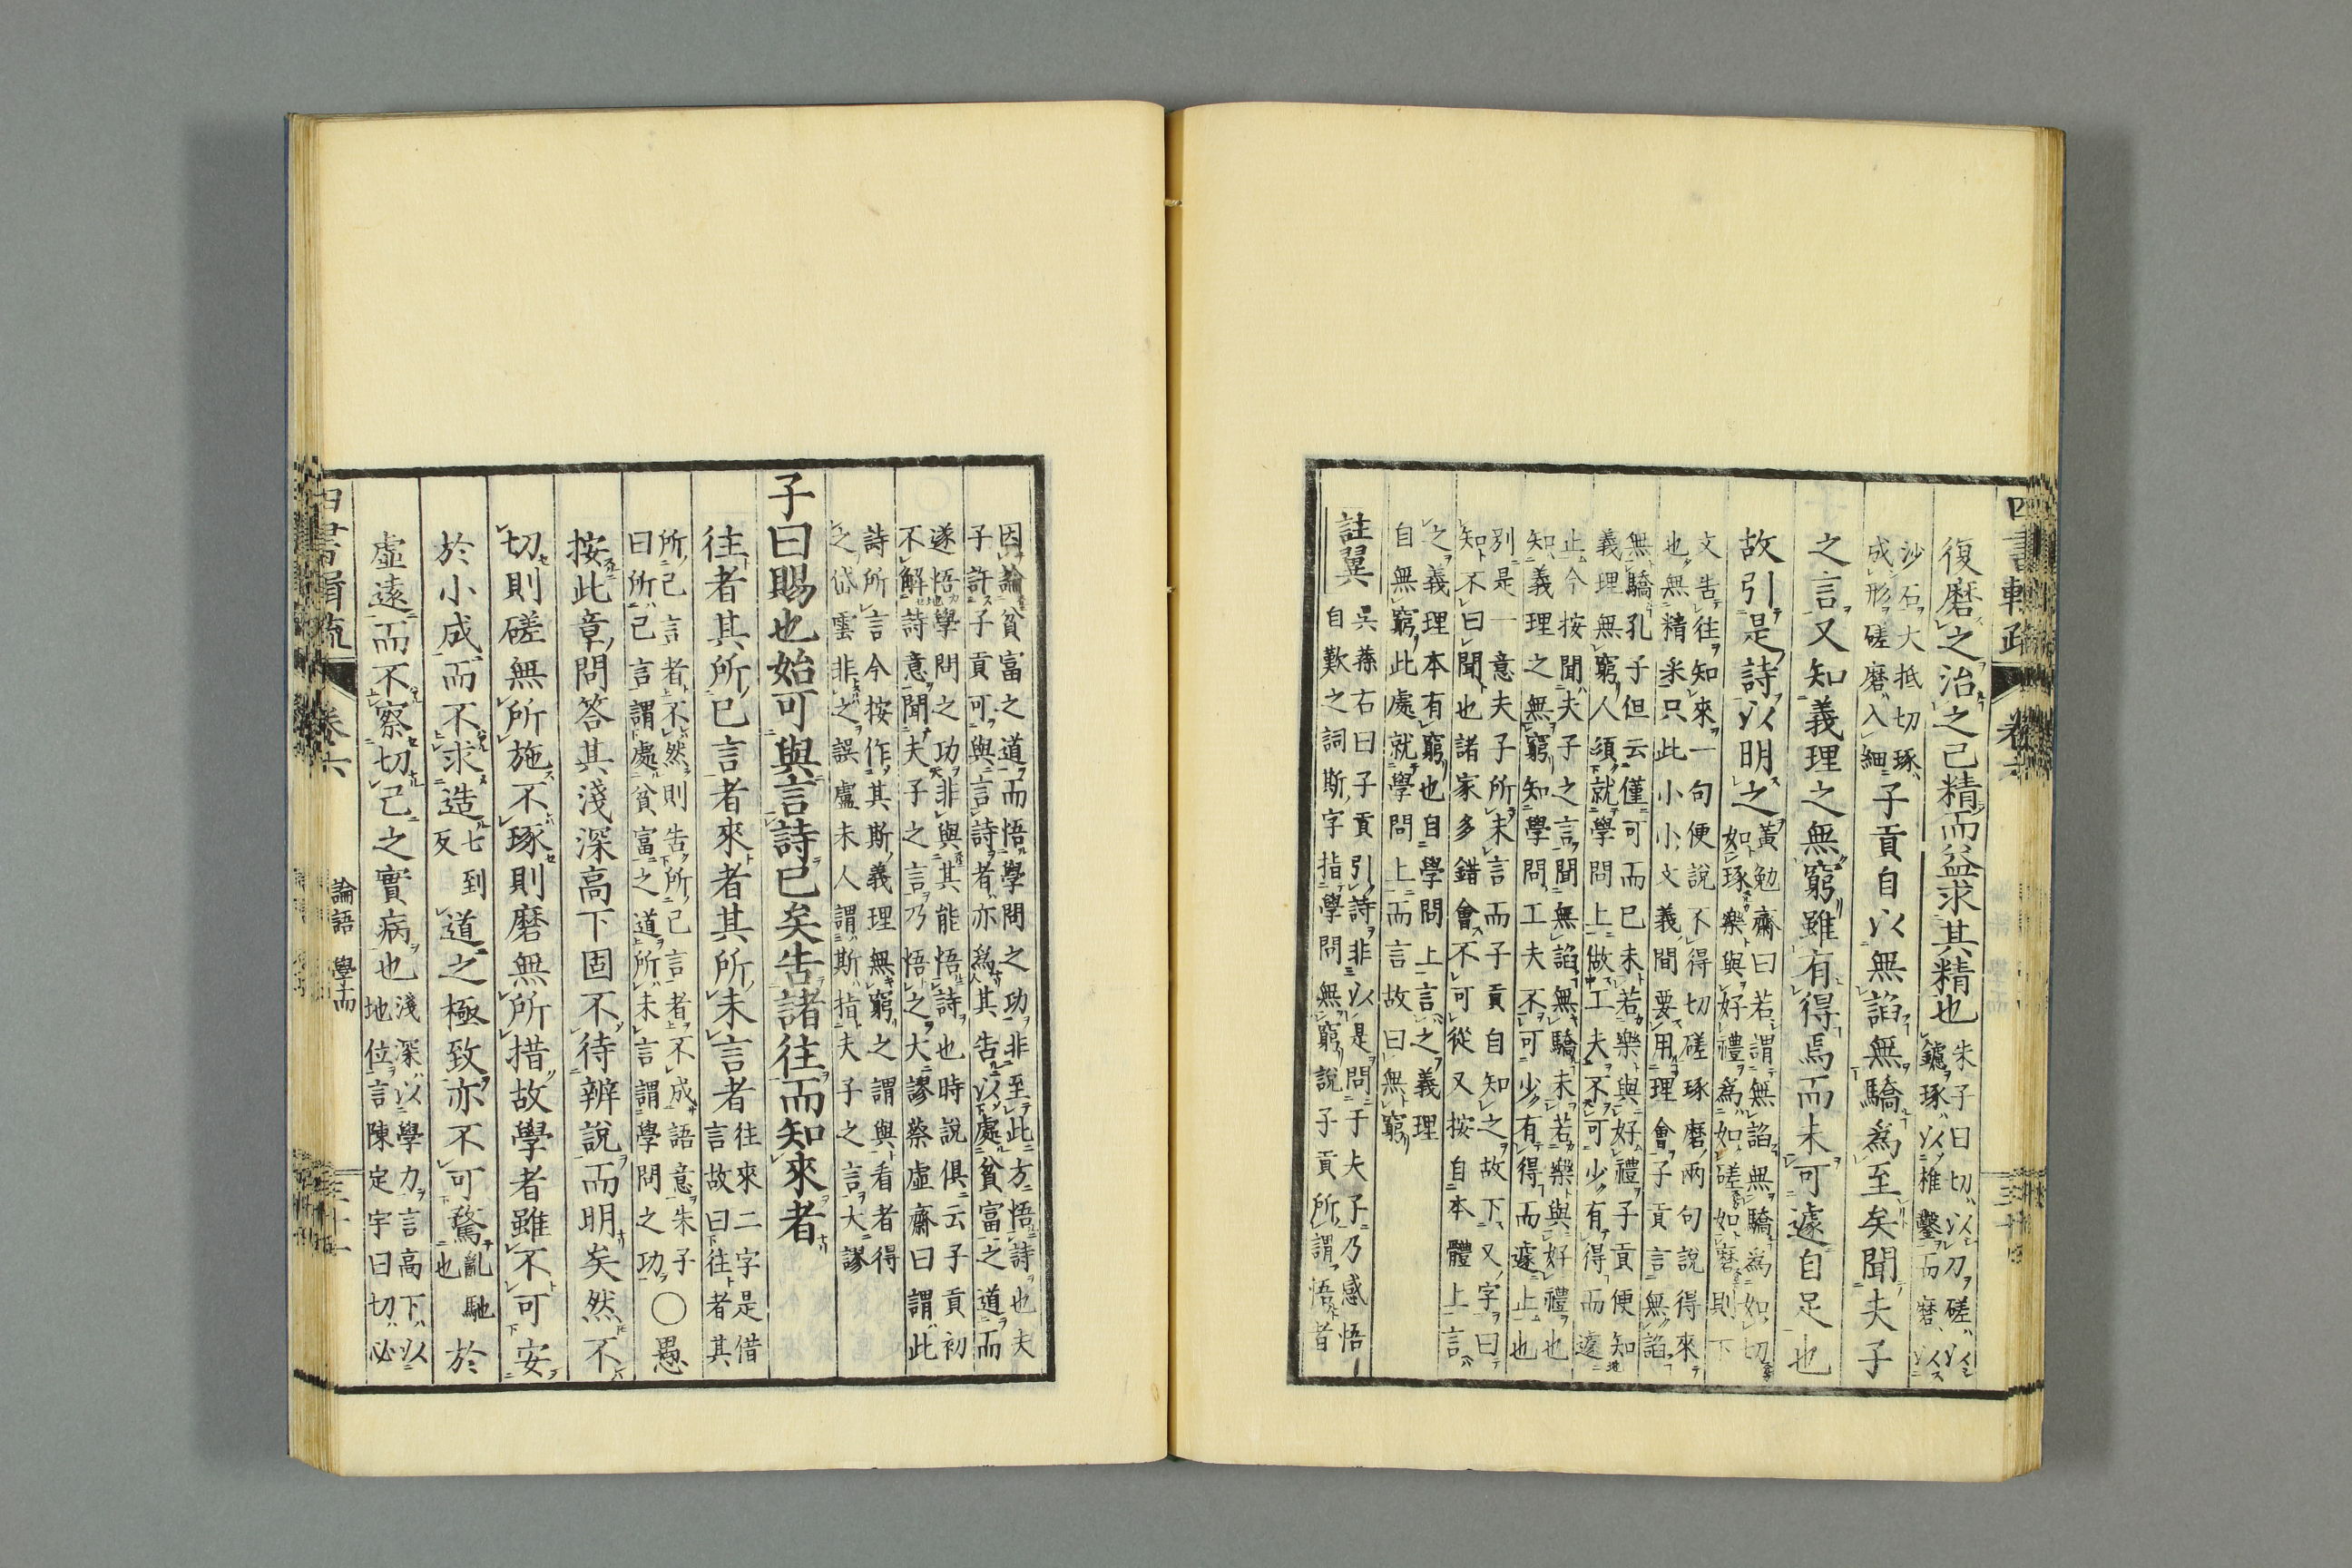 四書輯疏 卷六
復磨之治之已精而益求其精也
朱子曰切以刀磋以
鑢琢以椎鑿而磨以
沙石大抵切琢
成形磋磨入細
子貢自以無諂無驕爲至矣聞夫子
之言又知義理之無窮雖有得焉而未可遽自足也
故引是詩以明之
黃勉齋曰若謂無諂無驕爲如切
如琢樂與好禮爲如磋如磨則下
文告往知來一句便說不得切磋琢磨兩句說得來
也無精釆只此小小文義間要用理會子貢言無諂
無驕孔子但云僅可而已未若樂與好禮子貢便知
義理無窮人須就學問上做工夫不可少有得而遽
止今按聞夫子之言聞無諂無驕未若樂與好禮也
知義理之無窮知學問工夫不可少有得而遽止也
別是一意夫子所未言而子貢自知之故下又字曰
知不曰聞也諸家多錯會不可從又按自本體上言
之義理本有窮也自學問上言之義理
自無窮此處就學問上而言故曰無窮
註翼
吳蓀右曰子貢引詩非以是問于夫子乃感悟
自歎之詞斯字指學問無窮說子貢所謂悟者
因論貧富之道而悟學問之功非至此方悟詩也夫
子許子貢可與言詩者亦爲其告以處貧富之道而
遂悟學問之功非與其能悟詩也時說俱云子貢初
不解詩意聞夫子之言乃悟之大謬蔡虛齋曰謂此
詩所言今按作其斯義理無窮之謂與看者得
之岱雲非之誤盧未人謂斯指夫子之言大謬
子曰賜也始可與言詩已矣告諸往而知來者
往者其所已言者來者其所未言者
往來二字是借
言故曰往者其
所已言者不然則告所已言者不成語意朱子
曰所已言謂處貧富之道所未言謂學問之功
〇愚
按此章問答其淺深高下固不待辨說而明矣然不
切則磋無所施不琢則磨無所措故學者雖不可安
於小成而不求造
七到
反
道之極致亦不可騖
亂馳
也
於
虛遠而不察切己之實病也
淺深以學力言高下以
地位言陳定宇曰切必
四書輯疏 卷六 論語 學而